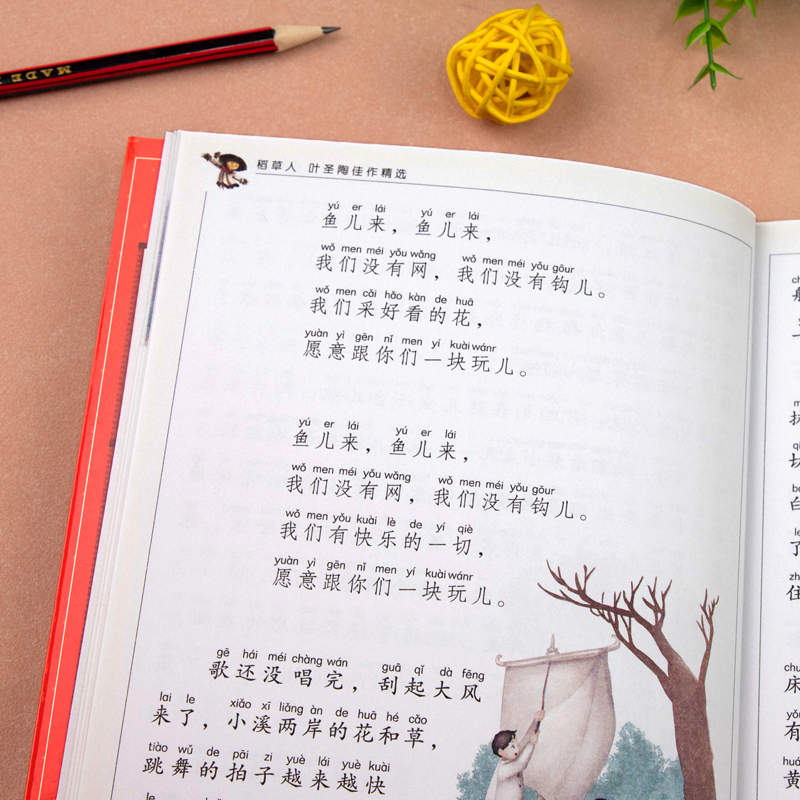 MADE
稻草人 叶圣陶佳作精选
yú er lái yú er lái
鱼儿来，鱼儿来，
wǒ men méi yǒu wǎng wǒ men méi yǒu gōur
我们没有网，我们没有钩儿。
wǒ men cǎi hǎo kàn de huā
我们采好看的花，
yuàn yì gēn nǐ men yí kuài wánr
愿意跟你们一块玩儿。
yú er lái yú er lái
鱼儿来，鱼儿来，
wǒ men méi yǒu wǎng wǒ men méi yǒu gōur
我们没有网，我们没有钩儿。
wǒ men yǒu kuài lè de yí qiè
我们有快乐的一切，
yuàn yì gēn nǐ men yí kuài wánr
愿意跟你们一块玩儿。
gē hái méi chàng wán guā qǐ dà fēng
歌还没唱完，刮起大风
lai le xiǎo xī liǎng àn de huā hé cǎo
来了，小溪两岸的花和草，
tiào wǔ de pāi zi yuè lái yuè kuài
跳舞的拍子越来越快
le
切
白
了
住
床
有
黄